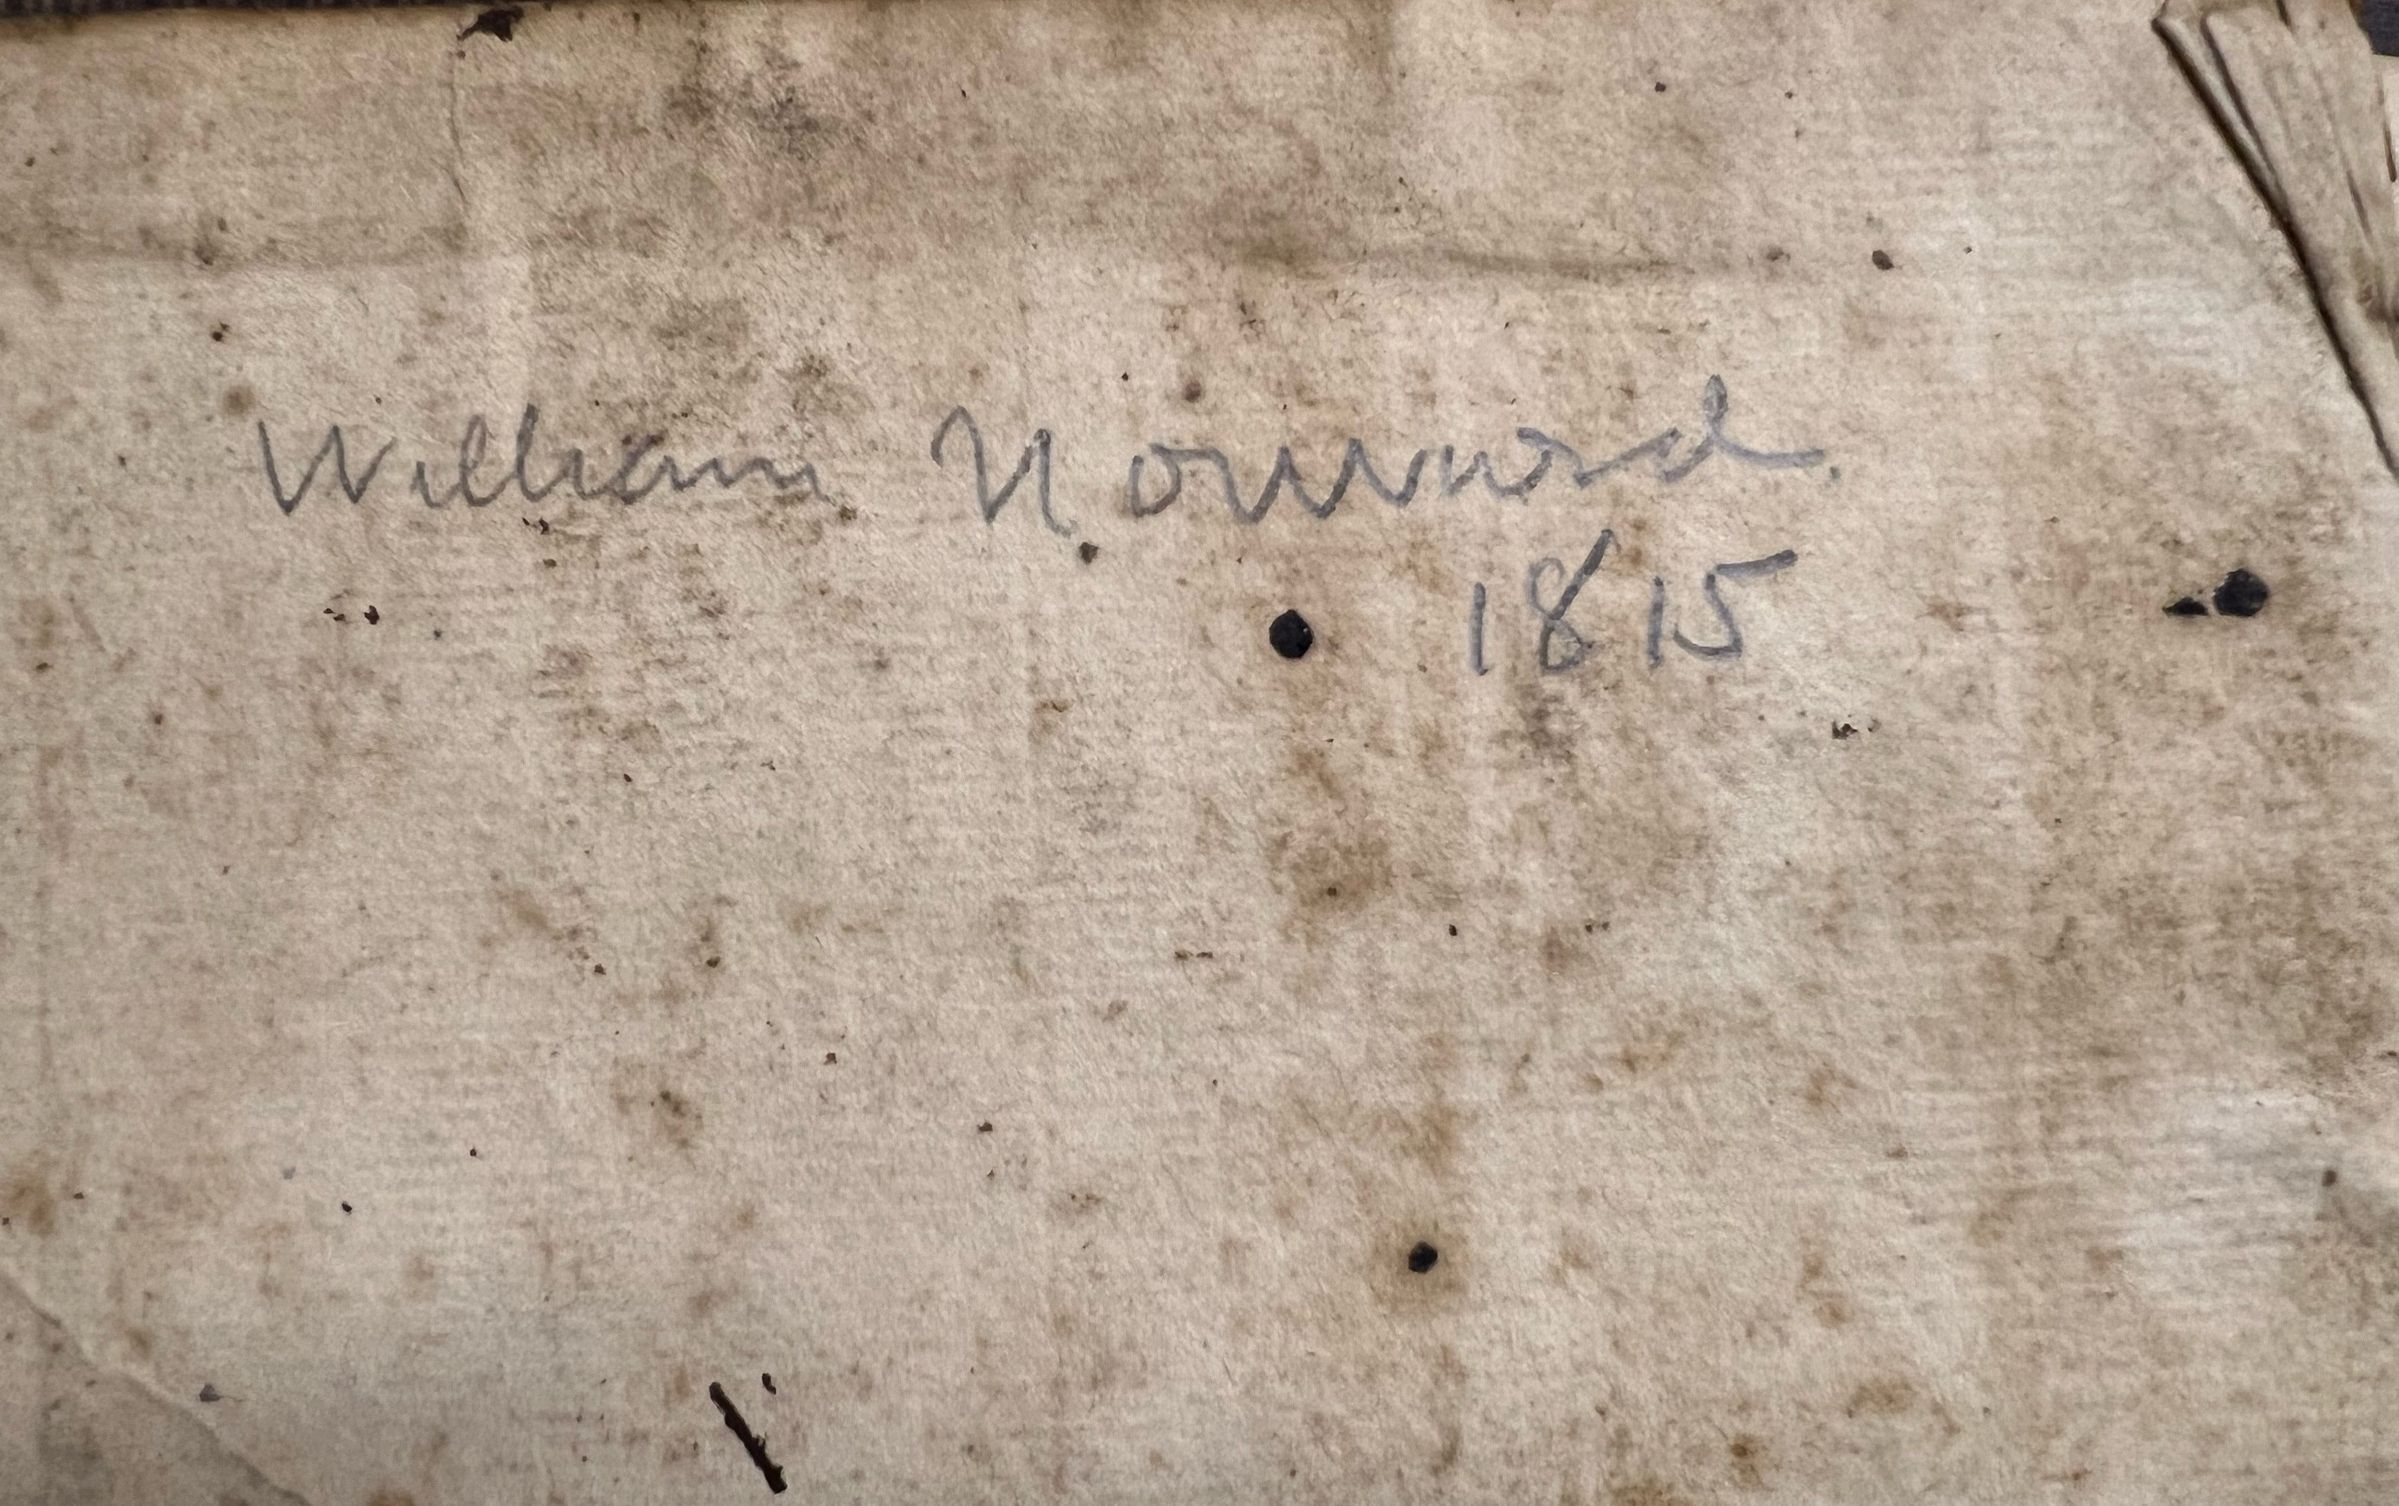 William Norwood.
1815